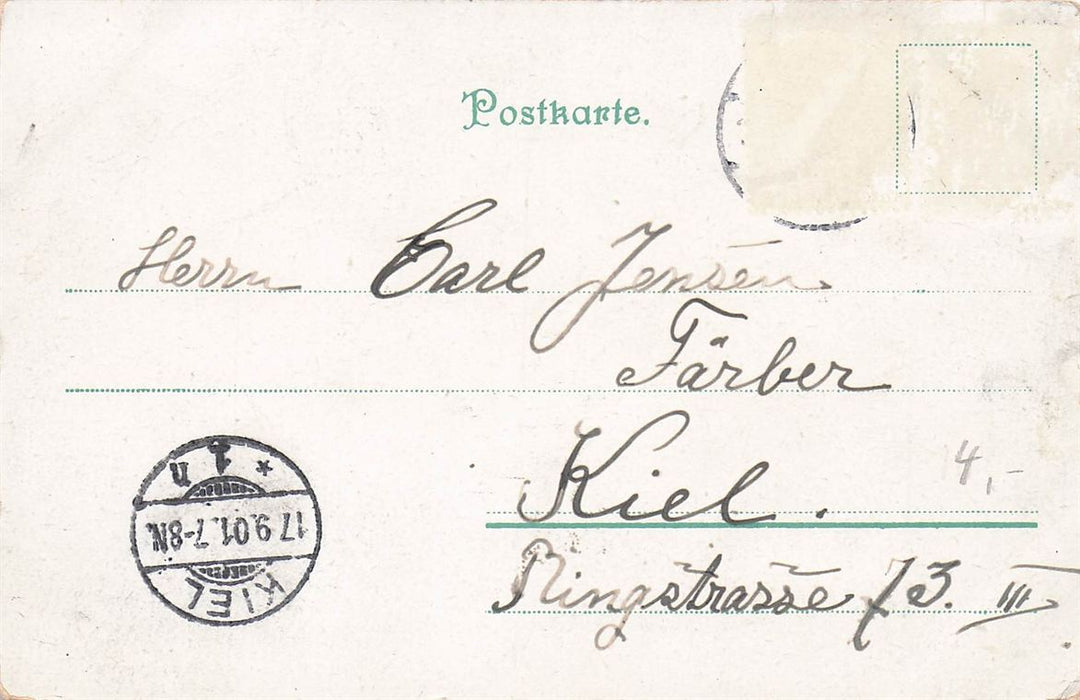 Postkarte.
Herrn Carl Jensen
Färber
Kiel.
14,-
Ringstrasse 73. III
KIEL
17.9.01.7-8N.
* 1 n